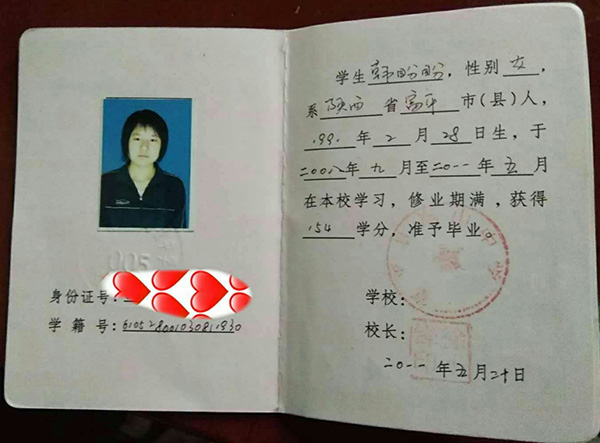 身份证号:
学籍号:610528001030811930
学生韩盼盼,性别女,
系陕西省富平市(县)人,
1991年2月28日生,于
二00八年九月至二0一一年五月
在本校学习,修业期满,获得
154学分,准予毕业。
学校:
校长:
二0一一年五月二十日